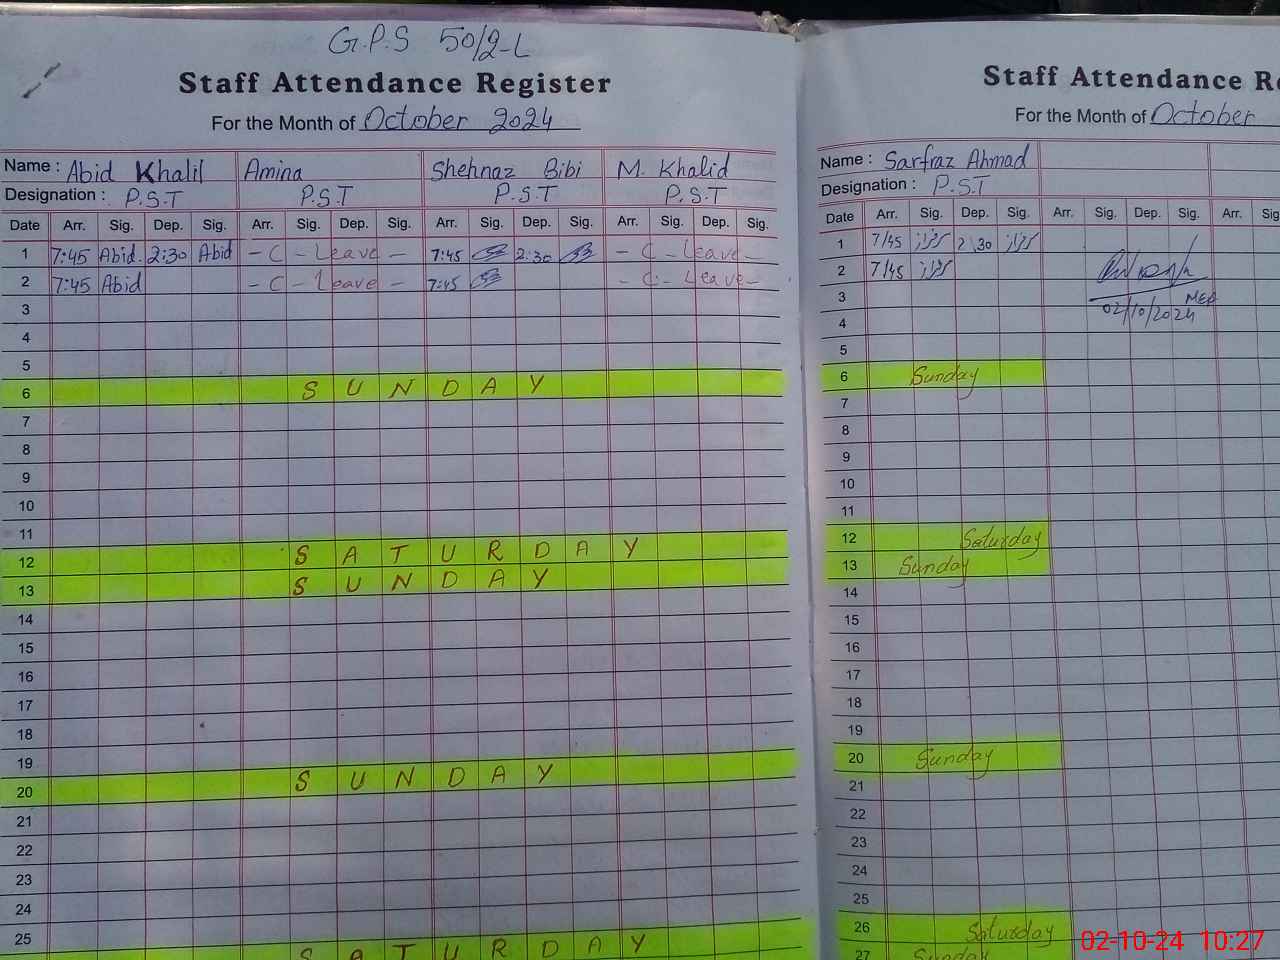 G.P.S 50/2-L
Staff Attendance Register
For the Month of October 2024
Name : Abid Khalil Amina Shehnaz Bibi M. Khalid
Designation : P.S.T P.S.T P.S.T P.S.T
Date Arr. Sig. Dep. Sig. Arr. Sig. Dep. Sig. Arr. Sig. Dep. Sig. Arr. Sig. Dep. Sig.
1 7:45 Abid. 2:30 Abid - C - Leave - 7:45 2:30 - C - Leave -
2 7:45 Abid - C - Leave - 7:45 - C - Leave -
3
4
5
6 SUNDAY
7
8
9
10
11
12 SATURDAY
13 SUNDAY
14
15
16
17
18
19
20 SUNDAY
21
22
23
24
25
SATURDAY
Staff Attendance Re
For the Month of October
Name : Sarfraz Ahmad
Designation : P.S.T
Date Arr. Sig. Dep. Sig. Arr. Sig. Dep. Sig. Arr. Sig
1 7/45 2\30
2 7/45
3
02/10/2024
4
5
6 Sunday
7
8
9
10
11
12 Saturday
13 Sunday
14
15
16
17
18
19
20 Sunday
21
22
23
24
25
26 Saturday
27 Sunday
02-10-24 10:27